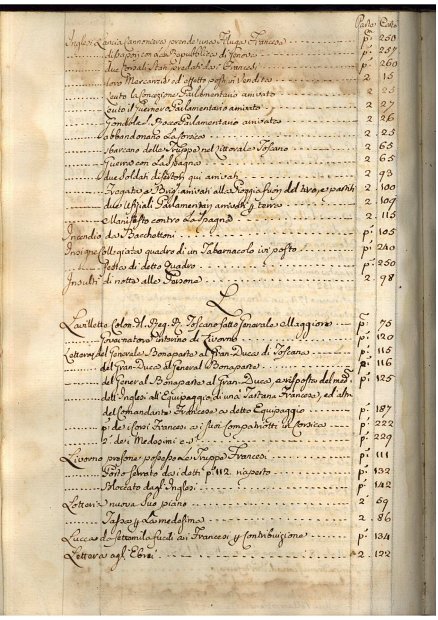 Parte Carte
Inglesi Lancia Cannoniera prende una Fluga Francese p.ª 250
dissapori con La Repubblica di Genova p.ª 257
due Corsali stati predati da' Francesi p.ª 260
loro Mercanzie ed effetti posti in Vendita 2. 15
Cutto la Concezione Parlamentario arrivato 2. 25
Cutto il Parlamentario arrivato 2. 27
Gondola S. Parlamentario arrivata 2. 26
abbandonato La Corsica 2. 25
sbarcano delle Truppe nel littorale Toscano 2. 65
Guerra con La Spagna 2. 65
due Soldati disertori qui arrivati 2. 93
Fregata e Brig arrivati alla Spiaggia fuori del tiro, e partiti 2. 100
due Ufiziali Parlamentari arrivati p. terra 2. 109
Manifesto contro La Spagna 2. 115
Incendio da Bacchettoni p.ª 105
Insigne Collegiata quadro di un Tabernacolo ivi posto p.ª 240
Festa di detto Quadro p.ª 250
Insulti di notte alle Persone 2. 98
L
Lavillette Colon. d. Reg. R. Toscano fatto Generale Maggiore p.ª 75
Governatore interino di Livorno p.ª 120
Lettere del Generale Bonaparte al Gran-Duca di Toscana p.ª 115
del Gran-Duca al General Bonaparte p.ª 116
del General Bonaparte al Gran Duca, e risposta del med.º p.ª 125
dell'Inglesi all'Equipaggio di una Tartana Francese, ed altri
del Comandante Francese a detto Equipaggio p.ª 187
p.ª de i Corsi Francesi ai suoi Compatriotti in Corsica p.ª 222
2.ª dei Medesimi p.ª 229
Livorno possesso Truppe Francesi p.ª 111
Porto serrato da i detti p.ª 112 riaperto p.ª 132
bloccato dagl'Inglesi p.ª 142
Lotteria nuova suo piano 2. 59
Tassa p. La medesima 2. 86
Lucca da Settemila fucili ai Francesi p. Contribuzione p.ª 134
Lettera agl'Ebrei 2. 122